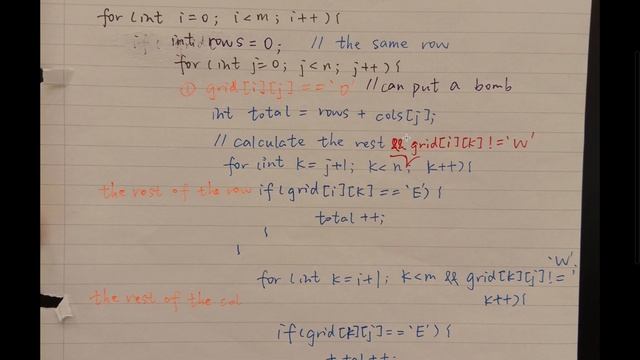 for (int i=0; i<m; i++){
int rows = 0; // the same row
for (int j=0; j<n; j++){
① grid[i][j] == '0' // can put a bomb
int total = rows + cols[j];
// calculate the rest && grid[i][k] != 'W'
for (int k = j+1; k<n; k++){
the rest of the row if (grid[i][k] == 'E') {
total ++;
}
}
for (int k=i+1; k<m && grid[k][j] != 'W';
the rest of the col k++){
if (grid[k][j] == 'E') {
total ++;